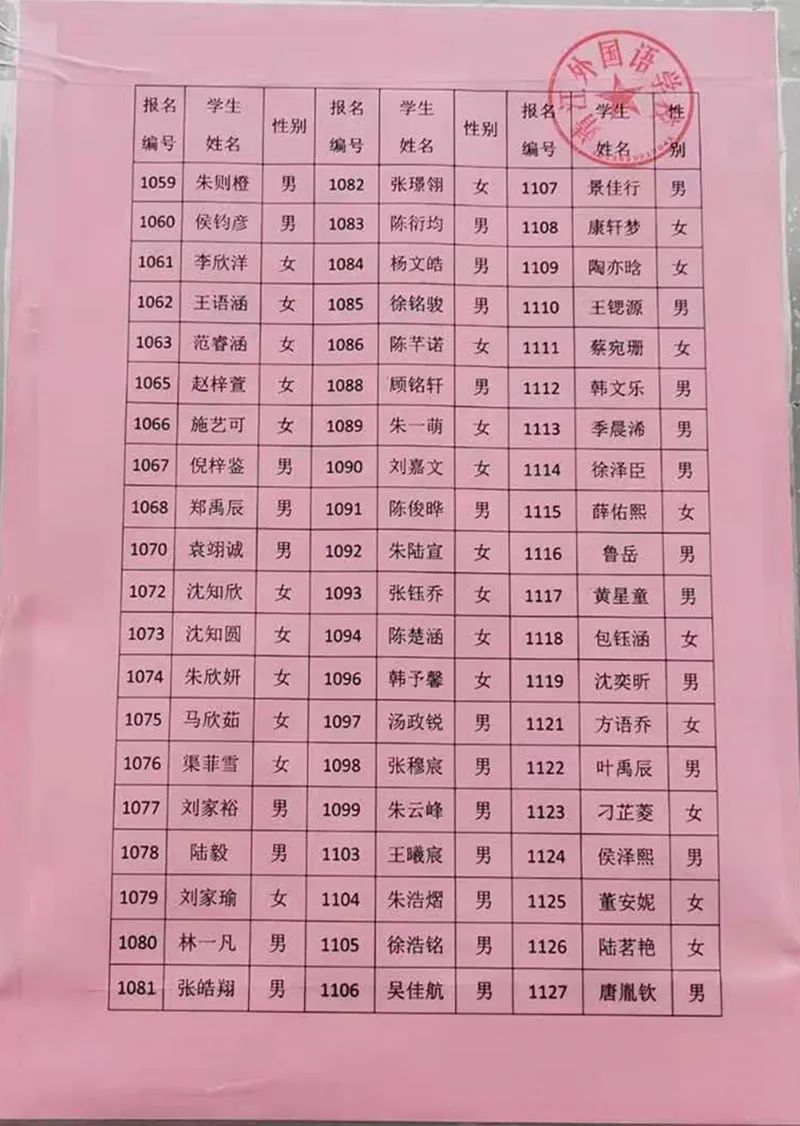 外国语学校
报名编号 学生姓名 性别 报名编号 学生姓名 性别 报名编号 学生姓名 性别
1059 朱则橙 男 1082 张璟翎 女 1107 景佳行 男
1060 侯钧彦 男 1083 陈衍均 男 1108 康轩梦 女
1061 李欣洋 女 1084 杨文皓 男 1109 陶亦晗 女
1062 王语涵 女 1085 徐铭骏 男 1110 王锶源 男
1063 范睿涵 女 1086 陈芊诺 女 1111 蔡宛珊 女
1065 赵梓萱 女 1088 顾铭轩 男 1112 韩文乐 男
1066 施艺可 女 1089 朱一萌 女 1113 季晨浠 男
1067 倪梓鉴 男 1090 刘嘉文 女 1114 徐泽臣 男
1068 郑禹辰 男 1091 陈俊晔 男 1115 薛佑熙 女
1070 袁翊诚 男 1092 朱陆宣 女 1116 鲁岳 男
1072 沈知欣 女 1093 张钰乔 女 1117 黄星童 男
1073 沈知圆 女 1094 陈楚涵 女 1118 包钰涵 女
1074 朱欣妍 女 1096 韩予馨 女 1119 沈奕昕 男
1075 马欣茹 女 1097 汤政锐 男 1121 方语乔 女
1076 渠菲雪 女 1098 张穆宸 男 1122 叶禹辰 男
1077 刘家裕 男 1099 朱云峰 男 1123 刁芷菱 女
1078 陆毅 男 1103 王曦宸 男 1124 侯泽熙 男
1079 刘家瑜 女 1104 朱浩熠 男 1125 董安妮 女
1080 林一凡 男 1105 徐浩铭 男 1126 陆茗艳 女
1081 张皓翔 男 1106 吴佳航 男 1127 唐胤钦 男